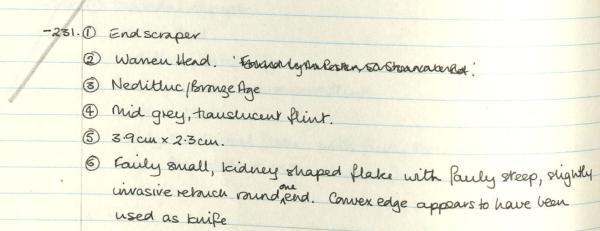 -231. ① Endscraper
② Warren Head.
③ Neolithic/Bronze Age
④ Mid grey, translucent flint.
⑤ 3.9cm x 2.3cm.
⑥ Fairly small, kidney shaped flake with fairly steep, slightly
invasive retouch round one end. Convex edge appears to have been
used as knife